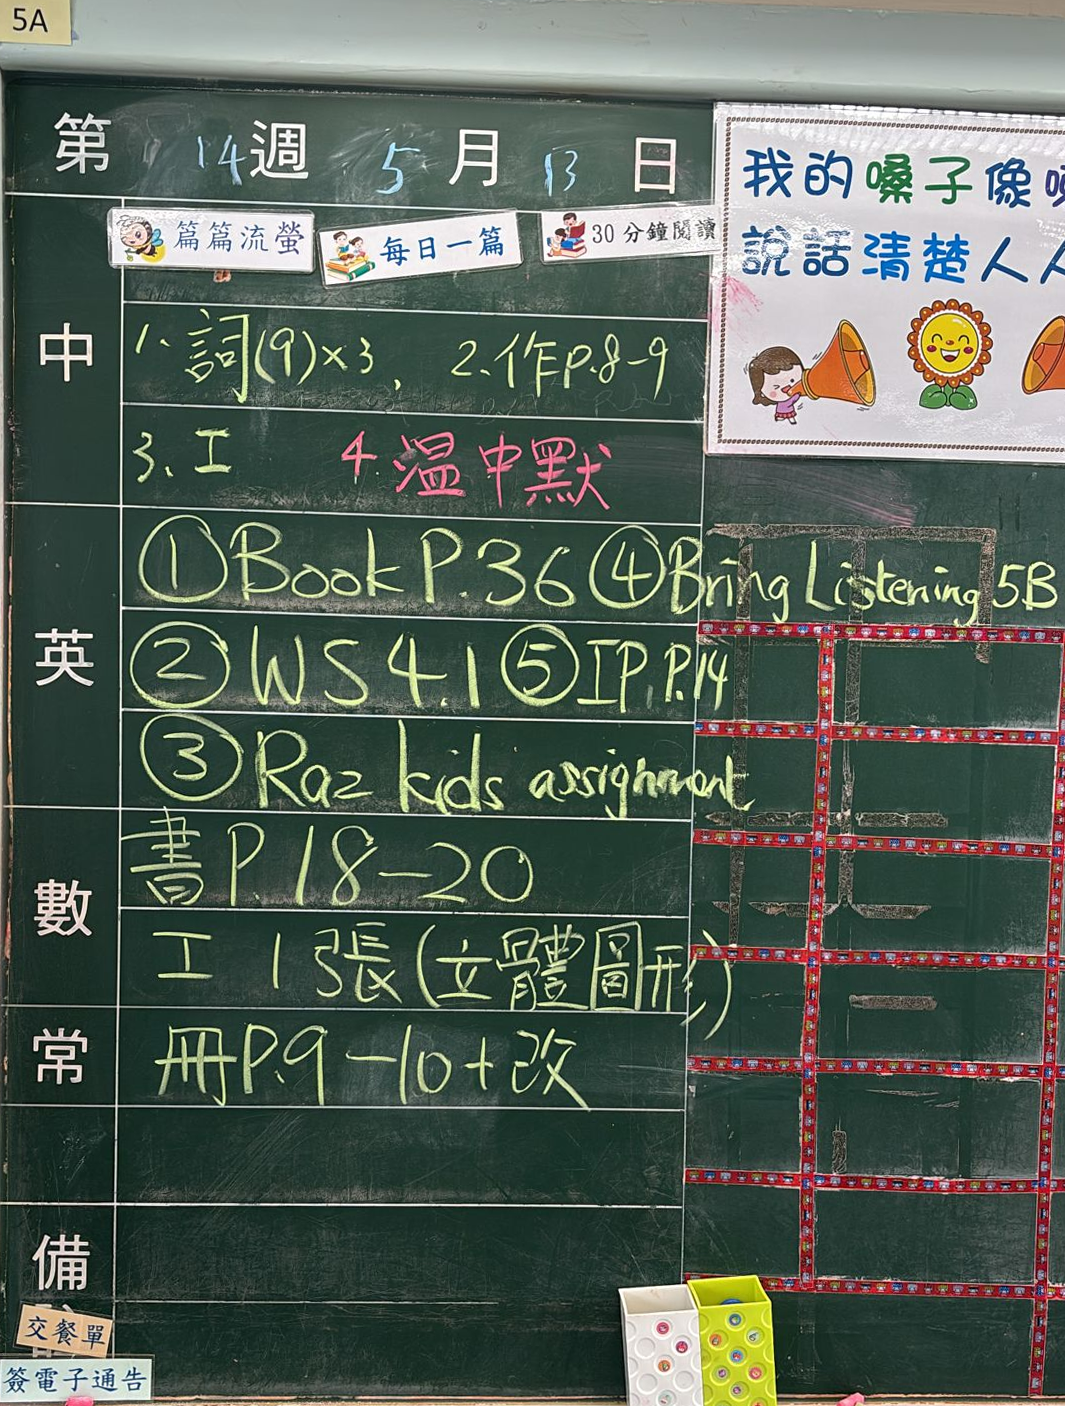 5A
第 14 週 5 月 13 日
我的嗓子像
說話清楚人人
篇篇流螢 每日一篇 30分鐘閱讀
中
1. 詞(9)×3, 2.作p.8-9
3、工 4.溫中默
英
①Book P.36 ④Bring Listening 5B
②WS 4.1 ⑤IP, P.14
③Raz kids assignment
數
書P.18-20
工 1張(立體圖形)
常
冊P.9-10+改
備
交餐單
簽電子通告